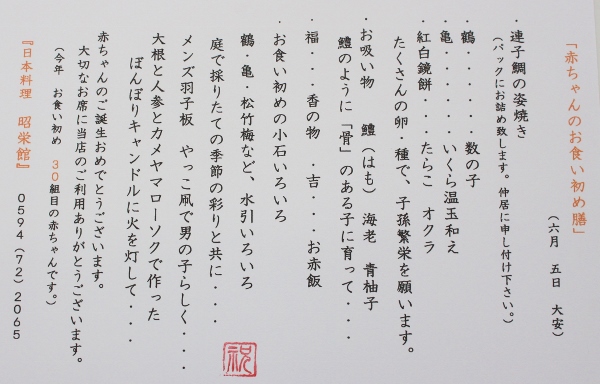 「赤ちゃんのお食い初め膳」
（六月　五日　大安）
・連子鯛の姿焼き
（パックにお詰め致します。仲居に申し付け下さい。）
・鶴・・・・・・数の子
・亀・・・・・・いくら温玉和え
・紅白鏡餅・・・・たらこ　オクラ
たくさんの卵・種で、子孫繁栄を願います。
・お吸い物　鱧（はも）　海老　青柚子
鱧のように「骨」のある子に育って・・・
・福・・・香の物　・吉・・　お赤飯
・お食い初めの小石いろいろ
鶴・亀・松竹梅など、水引いろいろ
庭で採りたての季節の彩りと共に・・・・
メンズ羽子板　やっこ凧で男の子らしく・・・
大根と人参とカメヤマローソクで作った
ぼんぼりキャンドルに火を灯して・・・
赤ちゃんのご誕生おめでとうございます。
大切なお席に当店のご利用ありがとうございます。
（今年　お食い初め　３０組目の赤ちゃんです。）
『日本料理　昭栄館』　０５９４（７２）２０６５
祝